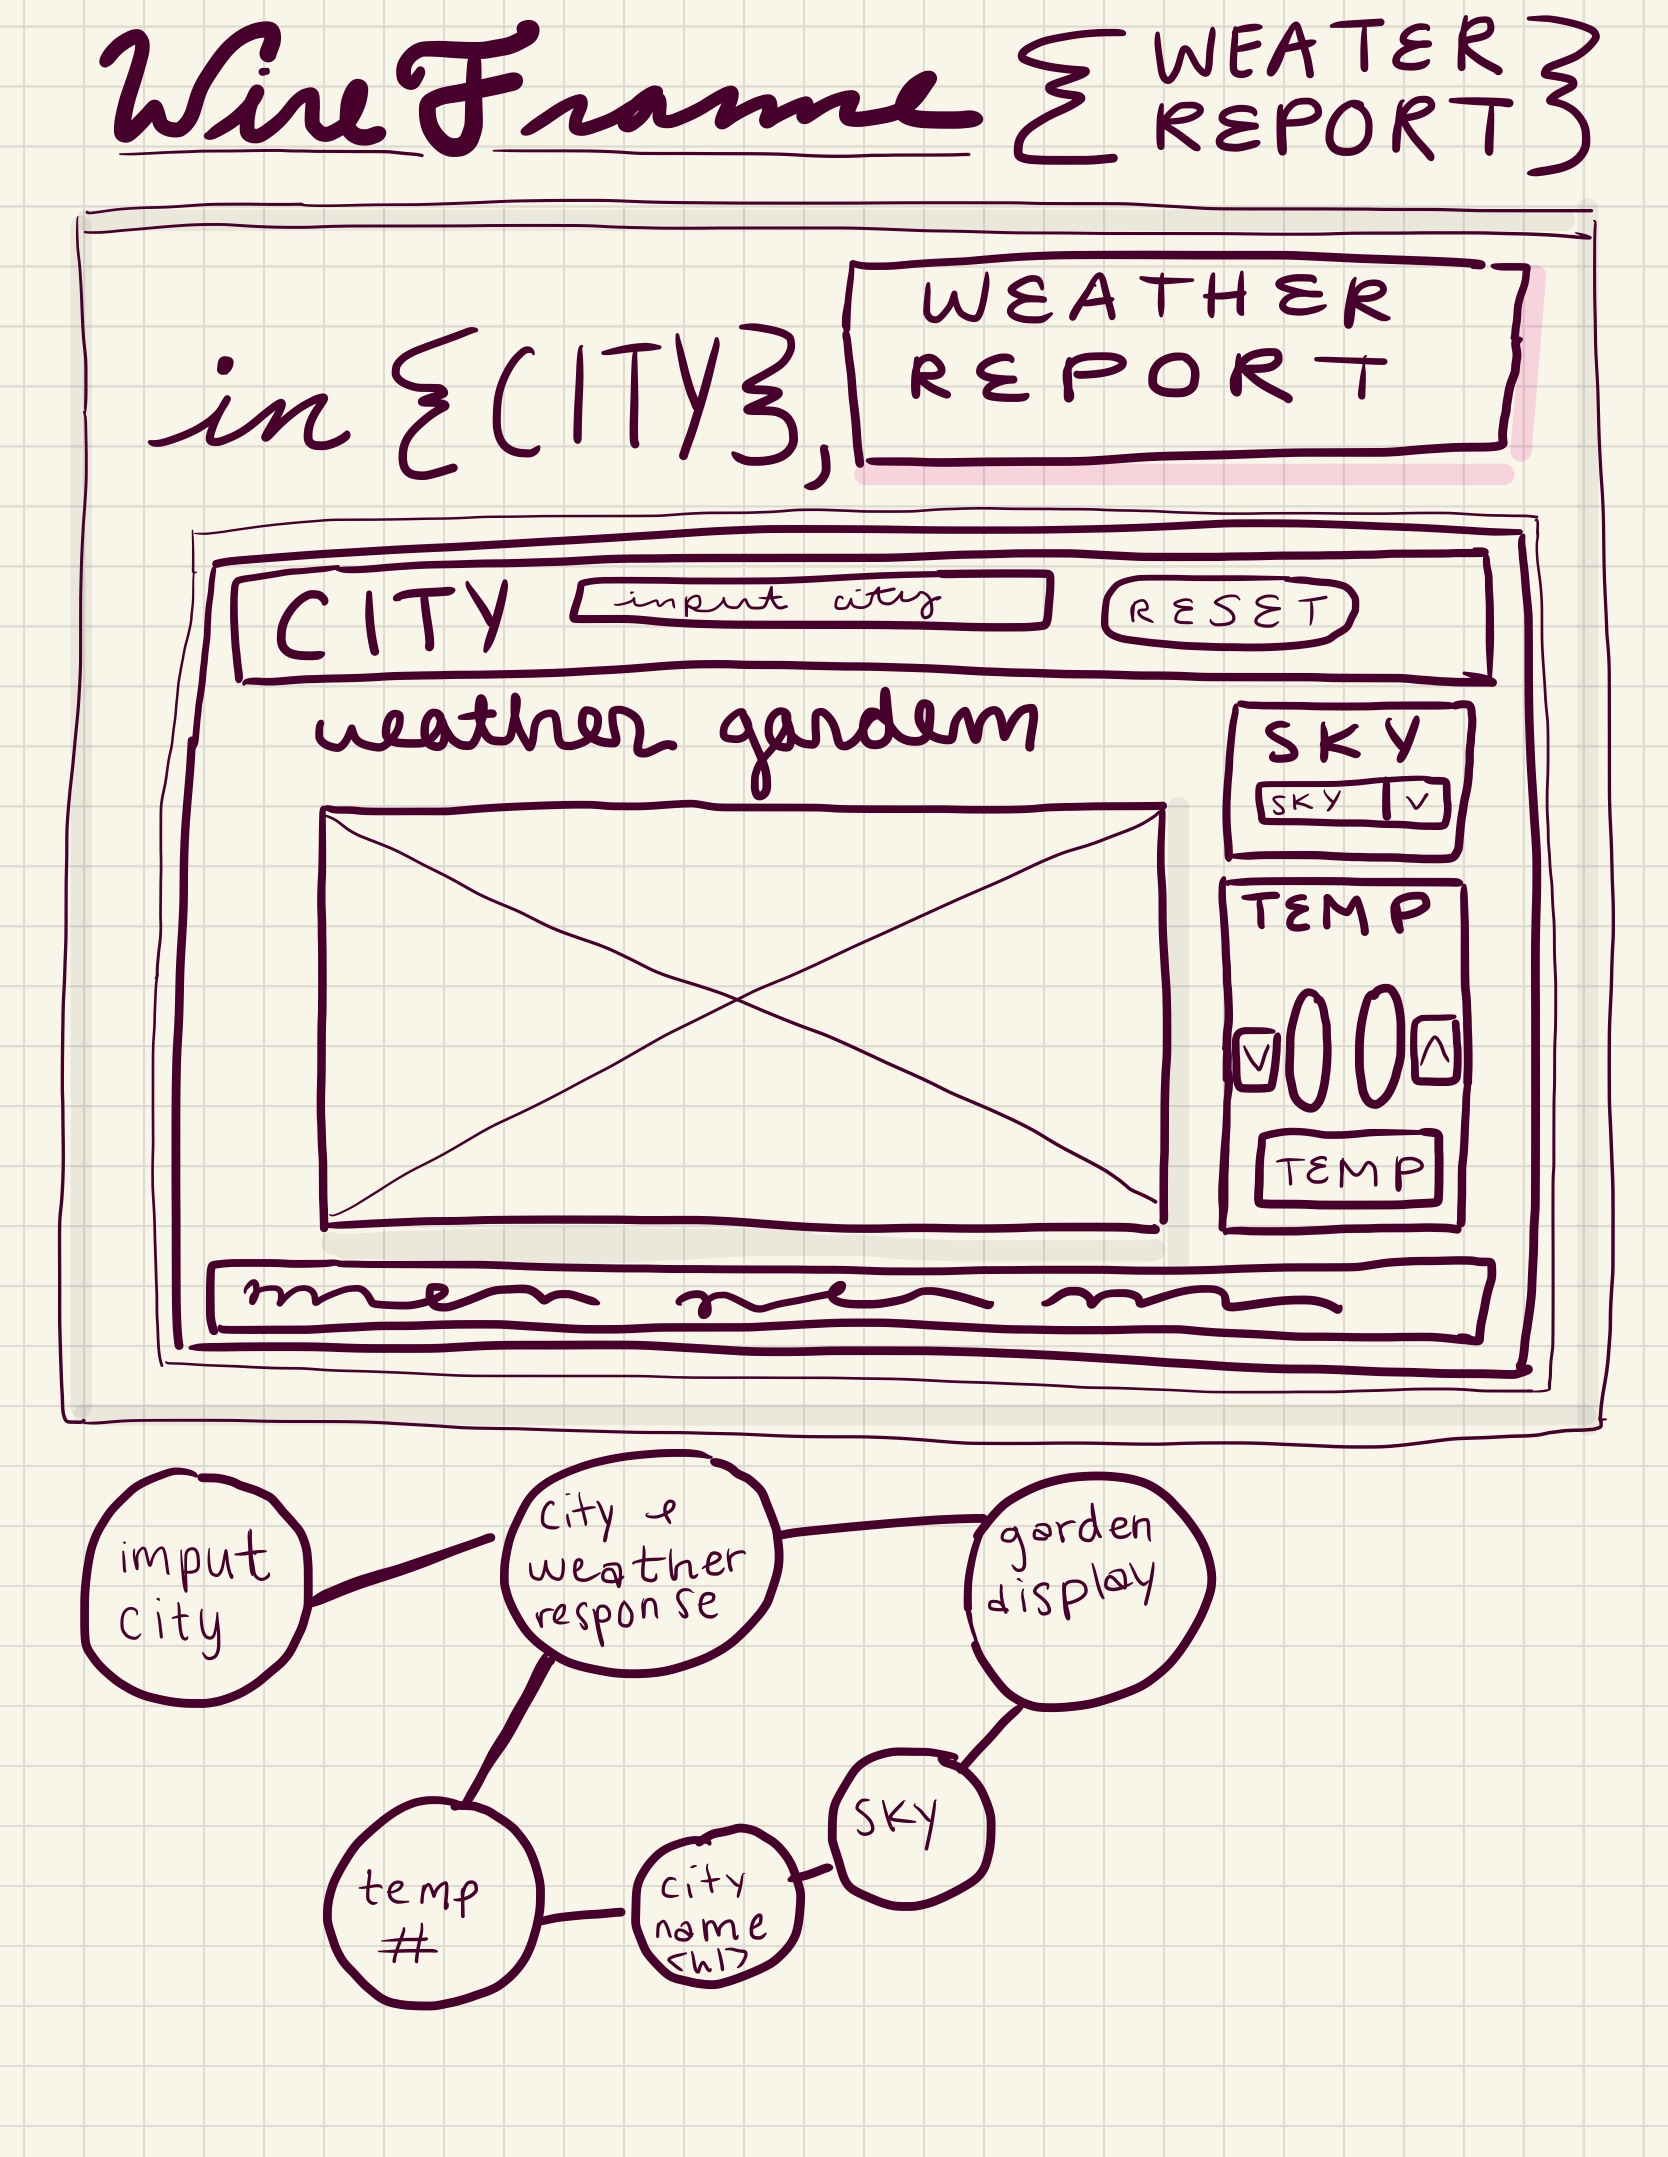 WireFrame
{ WEATER
REPORT }
WEATHER
REPORT
in {CITY},
CITY
input city
RESET
weather garden
SKY
SKY V
TEMP
V 0 0 ^
TEMP
imput
city
city &
weather
response
garden
display
SKY
temp
#
city
name
<h1>